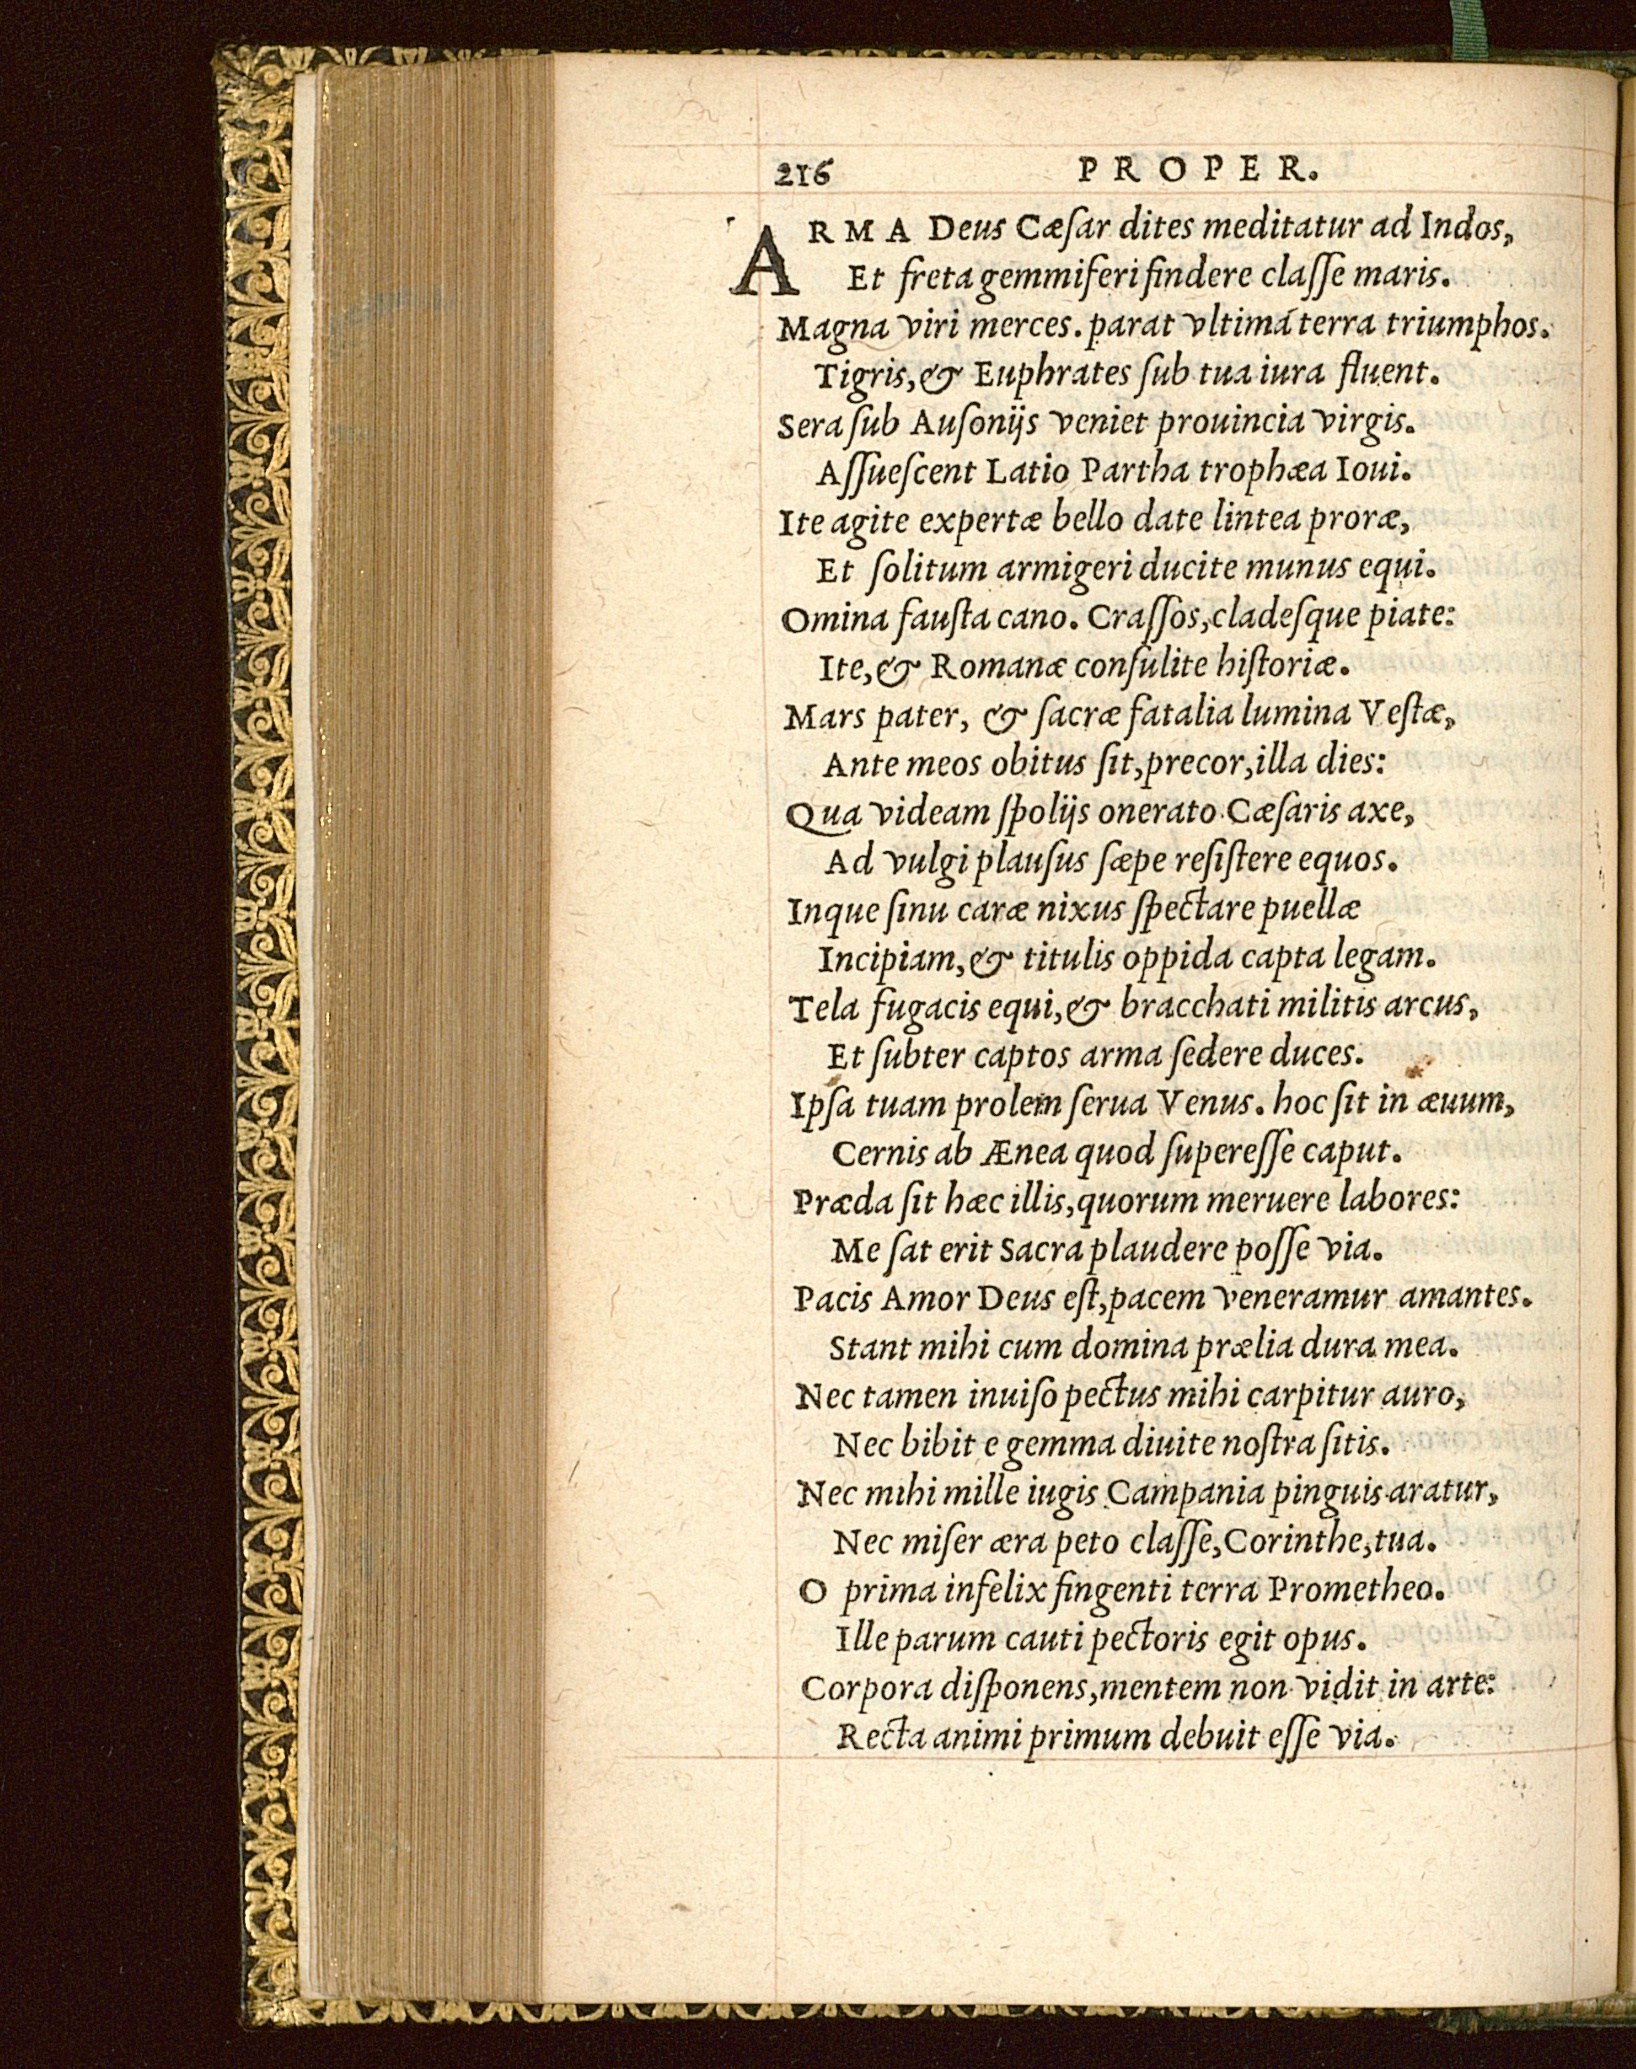 216 PROPER.
ARMA Deus Cæſar dites meditatur ad Indos,
Et freta gemmiferi findere claſſe maris.
Magna viri merces. parat vltimá terra triumphos.
Tigris, & Euphrates ſub tua iura fluent.
Sera ſub Auſonijs veniet prouincia virgis.
Aſſueſcent Latio Partha trophæa Ioui.
Ite agite expertæ bello date lintea proræ,
Et ſolitum armigeri ducite munus equi.
Omina fauſta cano. Craſſos, cladeſque piate:
Ite, & Romanæ conſulite hiſtoriæ.
Mars pater, & ſacræ fatalia lumina Veſtæ,
Ante meos obitus ſit, precor, illa dies:
Qua videam ſpolijs onerato Cæſaris axe,
Ad vulgi plauſus ſæpe reſiſtere equos.
Inque ſinu caræ nixus ſpectare puellæ
Incipiam, & titulis oppida capta legam.
Tela fugacis equi, & bracchati militis arcus,
Et ſubter captos arma ſedere duces.
Ipſa tuam prolem ſerua Venus. hoc ſit in æuum,
Cernis ab Ænea quod ſupereſſe caput.
Præda ſit hæc illis, quorum meruere labores:
Me ſat erit Sacra plaudere poſſe via.
Pacis Amor Deus eſt, pacem veneramur amantes.
Stant mihi cum domina prælia dura mea.
Nec tamen inuiſo pectus mihi carpitur auro,
Nec bibit e gemma diuite noſtra ſitis.
Nec mihi mille iugis Campania pinguis aratur,
Nec miſer æra peto claſſe, Corinthe, tua.
O prima infelix fingenti terra Prometheo.
Ille parum cauti pectoris egit opus.
Corpora diſponens, mentem non vidit in arte:
Recta animi primum debuit eſſe via.